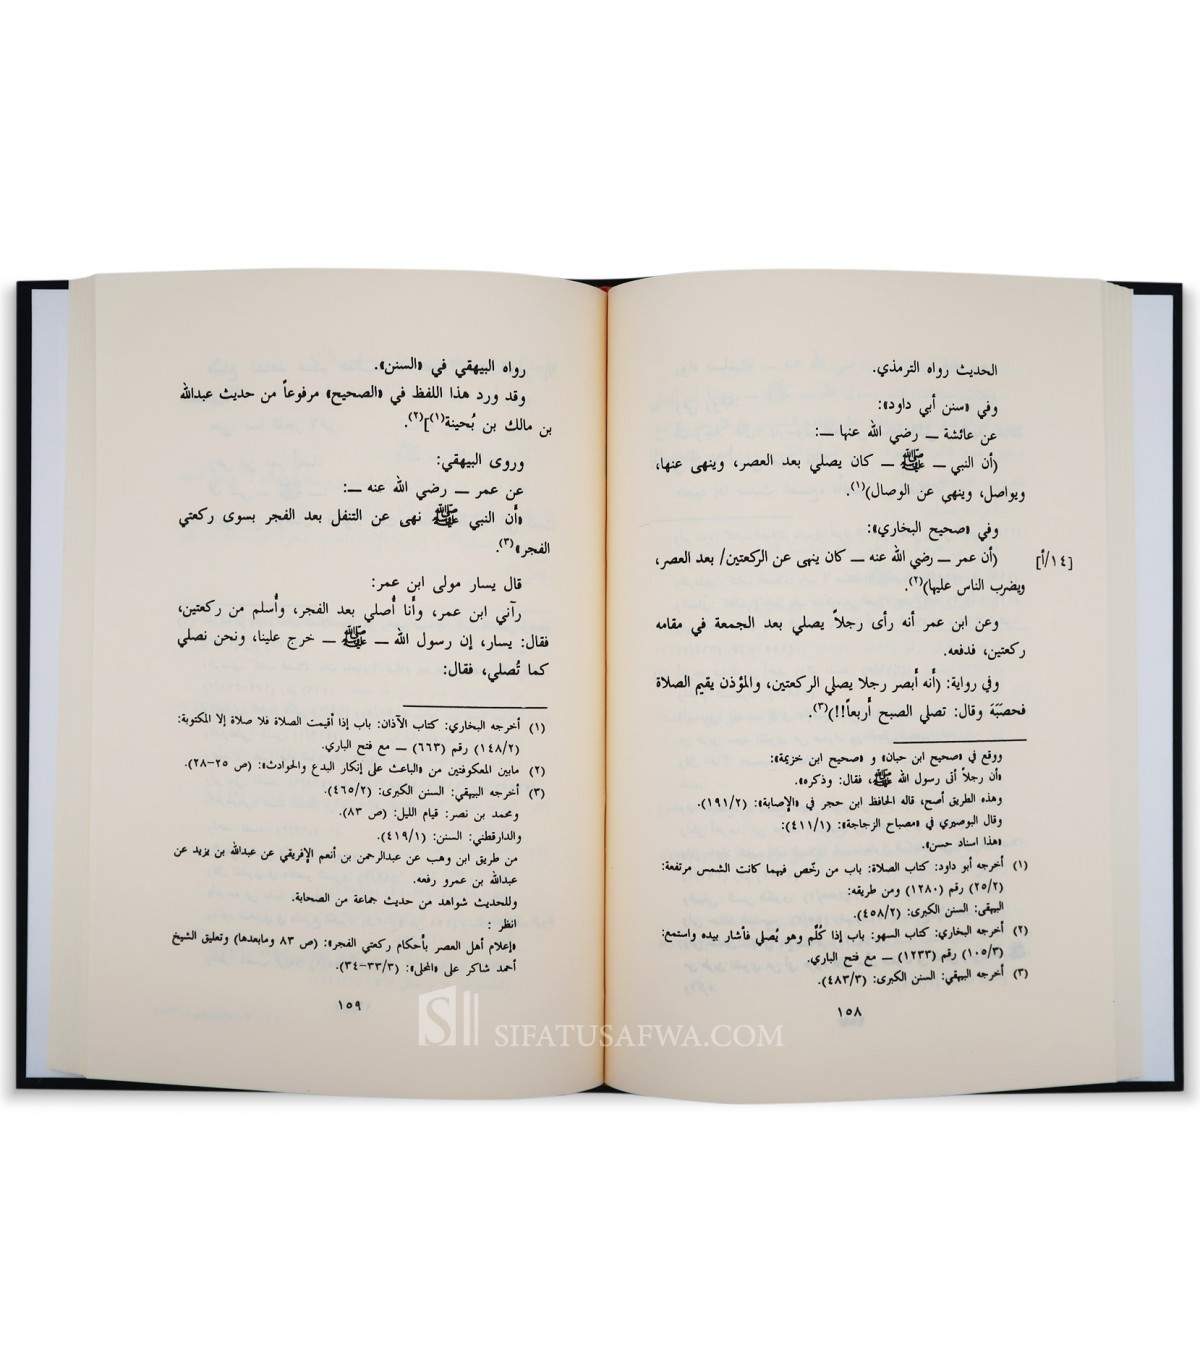 الحديث رواه الترمذي.
وفي «سنن أبي داود»:
عن عائشة ــ رضي الله عنها ــ:
(أن النبي ــ ﷺ ــ كان يصلي بعد العصر، وينهى عنها،
ويواصل، وينهى عن الوصال)(١).
وفي «صحيح البخاري»:
[١٤/أ] (أن عمر ــ رضي الله عنه ــ كان ينهى عن الركعتين/ بعد العصر،
ويضرب الناس عليها)(٢).
وعن ابن عمر أنه رأى رجلاً يصلي بعد الجمعة في مقامه
ركعتين، فدفعه.
وفي رواية: (أنه أبصر رجلا يصلي الركعتين، والمؤذن يقيم الصلاة
فحصَبَهَ وقال: تصلي الصبح أربعاً!!)(٣).
ووقع في «صحيح ابن حبان» و «صحيح ابن خزيمة»:
«أن رجلاً أتى رسول الله ﷺ، فقال: وذكره».
وهذه الطريق أصح، قاله الحافظ ابن حجر في «الإصابة»: (١٩١/٢).
وقال البوصيري في «مصباح الزجاجة»: (٤١١/١):
«هذا اسناد حسن».
(١) أخرجه أبو داود: كتاب الصلاة: باب من رخّص فيهما كانت الشمس مرتفعة:
(٢٥/٢) رقم (١٢٨٠) ومن طريقه:
البيهقى: السنن الكبرى: (٤٥٨/٢).
(٢) أخرجه البخاري: كتاب السهو: باب إذا كُلِّم وهو يُصلي فأشار بيده واستمع:
(١٠٥/٣) رقم (١٢٣٣) ــ مع فتح الباري.
(٣) أخرجه البيهقي: السنن الكبرى: (٤٨٣/٣).
١٥٨
رواه البيهقي في «السنن».
وقد ورد هذا اللفظ في «الصحيح» مرفوعاً من حديث عبدالله
بن مالك بن بُحينة(١)](٢).
وروى البيهقي:
عن عمر ــ رضي الله عنه ــ:
«أن النبي ﷺ نهى عن التنفل بعد الفجر بسوى ركعتي
الفجر»(٣).
قال يسار مولى ابن عمر:
رآني ابن عمر، وأنا أُصلي بعد الفجر، وأُسلم من ركعتين،
فقال: يسار، إن رسول الله ــ ﷺ ــ خرج علينا، ونحن نصلي
كما تُصلي، فقال:
(١) أخرجه البخاري: كتاب الآذان: باب إذا أقيمت الصلاة فلا صلاة إلا المكتوبة:
(١٤٨/٢) رقم (٦٦٣) ــ مع فتح الباري.
(٢) مابين المعكوفتين من «الباعث على إنكار البدع والحوادث»: (ص ٢٥-٢٨).
(٣) أخرجه البيهقي: السنن الكبرى: (٤٦٥/٢).
ومحمد بن نصر: قيام الليل: (ص ٨٣).
والدارقطني: السنن: (٤١٩/١).
من طريق ابن وهب عن عبدالرحمن بن أنعم الإفريقي عن عبدالله بن يزيد عن
عبدالله بن عمرو رفعه.
وللحديث شواهد من حديث جماعة من الصحابة.
انظر :
«إعلام أهل العصر بأحكام ركعتي الفجر»: (ص ٨٣ ومابعدها) وتعليق الشيخ
أحمد شاكر على «المحلى»: (٣٣/٣-٣٤).
١٥٩
SIFATUSAFWA.COM